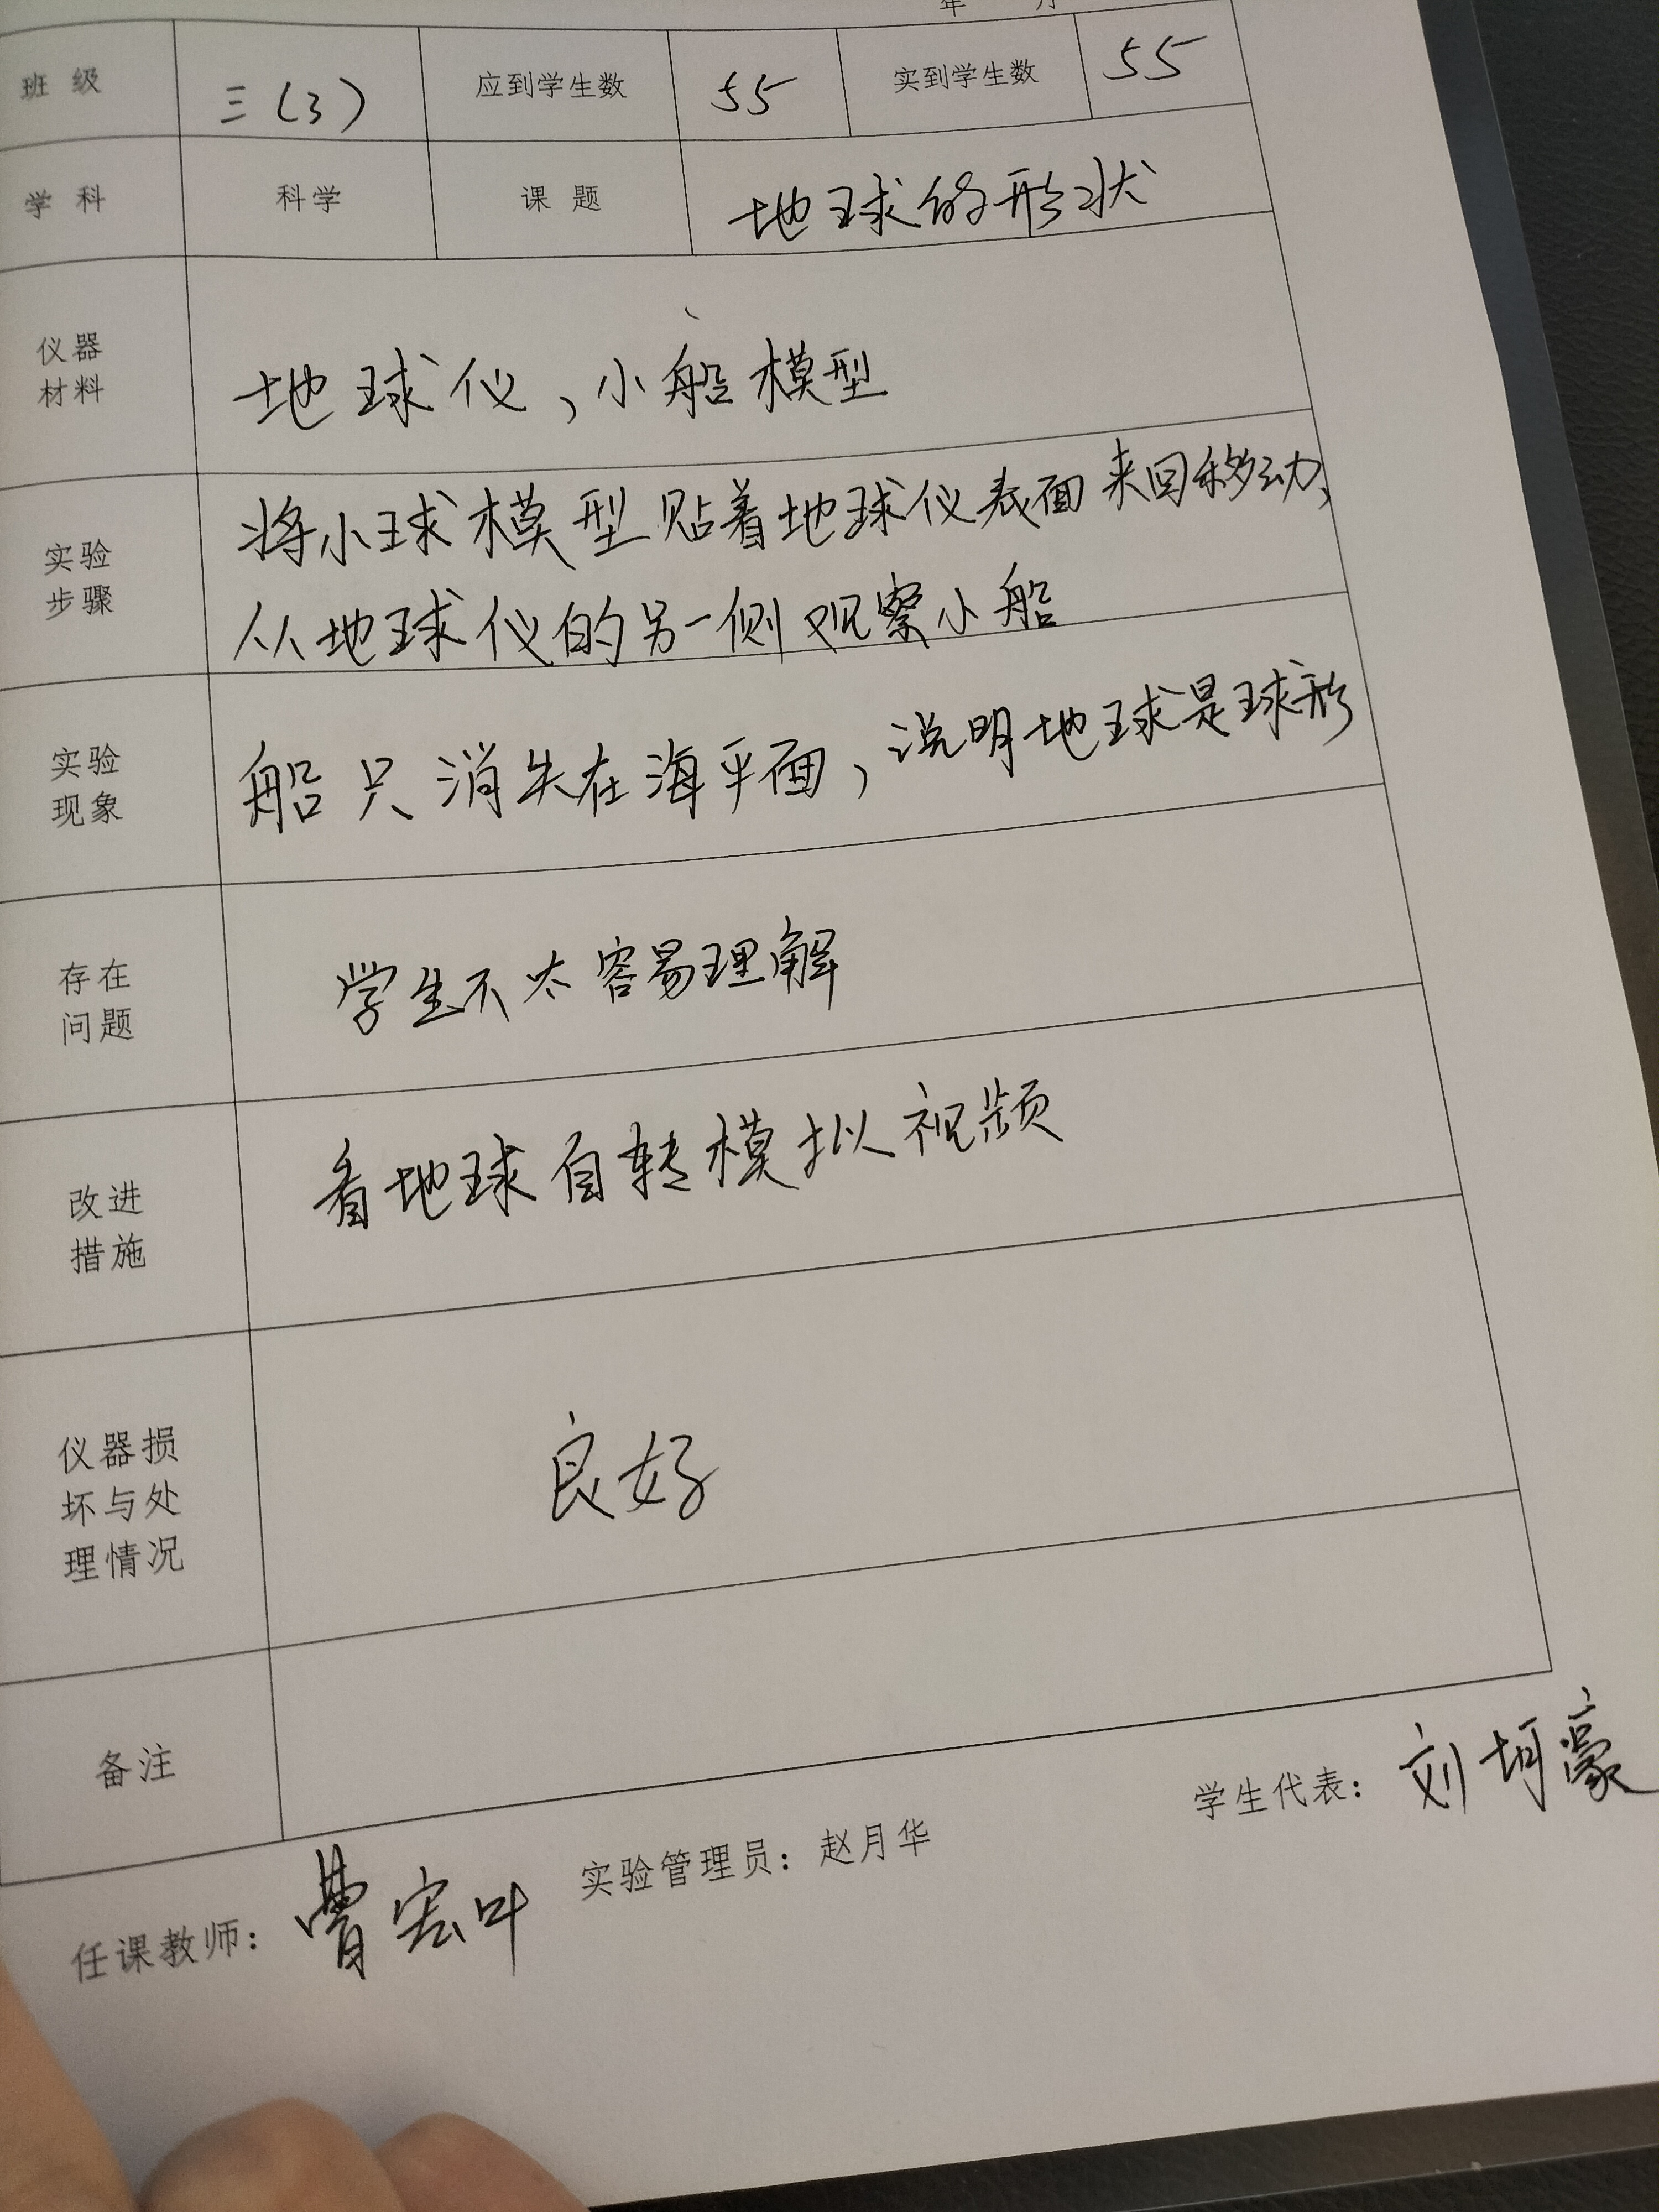 年 月
班 级 三(3) 应到学生数 55 实到学生数 55
学 科 科学 课 题 地球的形状
仪器
材料
地球仪,小船模型
实验
步骤
将小球模型贴着地球仪表面来回移动,
从地球仪的另一侧观察小船
实验
现象
船只消失在海平面,说明地球是球形
存在
问题
学生不太容易理解
改进
措施
看地球自转模拟视频
仪器损
坏与处
理情况
良好
备注
任课教师: 曹宏叶 实验管理员: 赵月华 学生代表: 刘坷豪